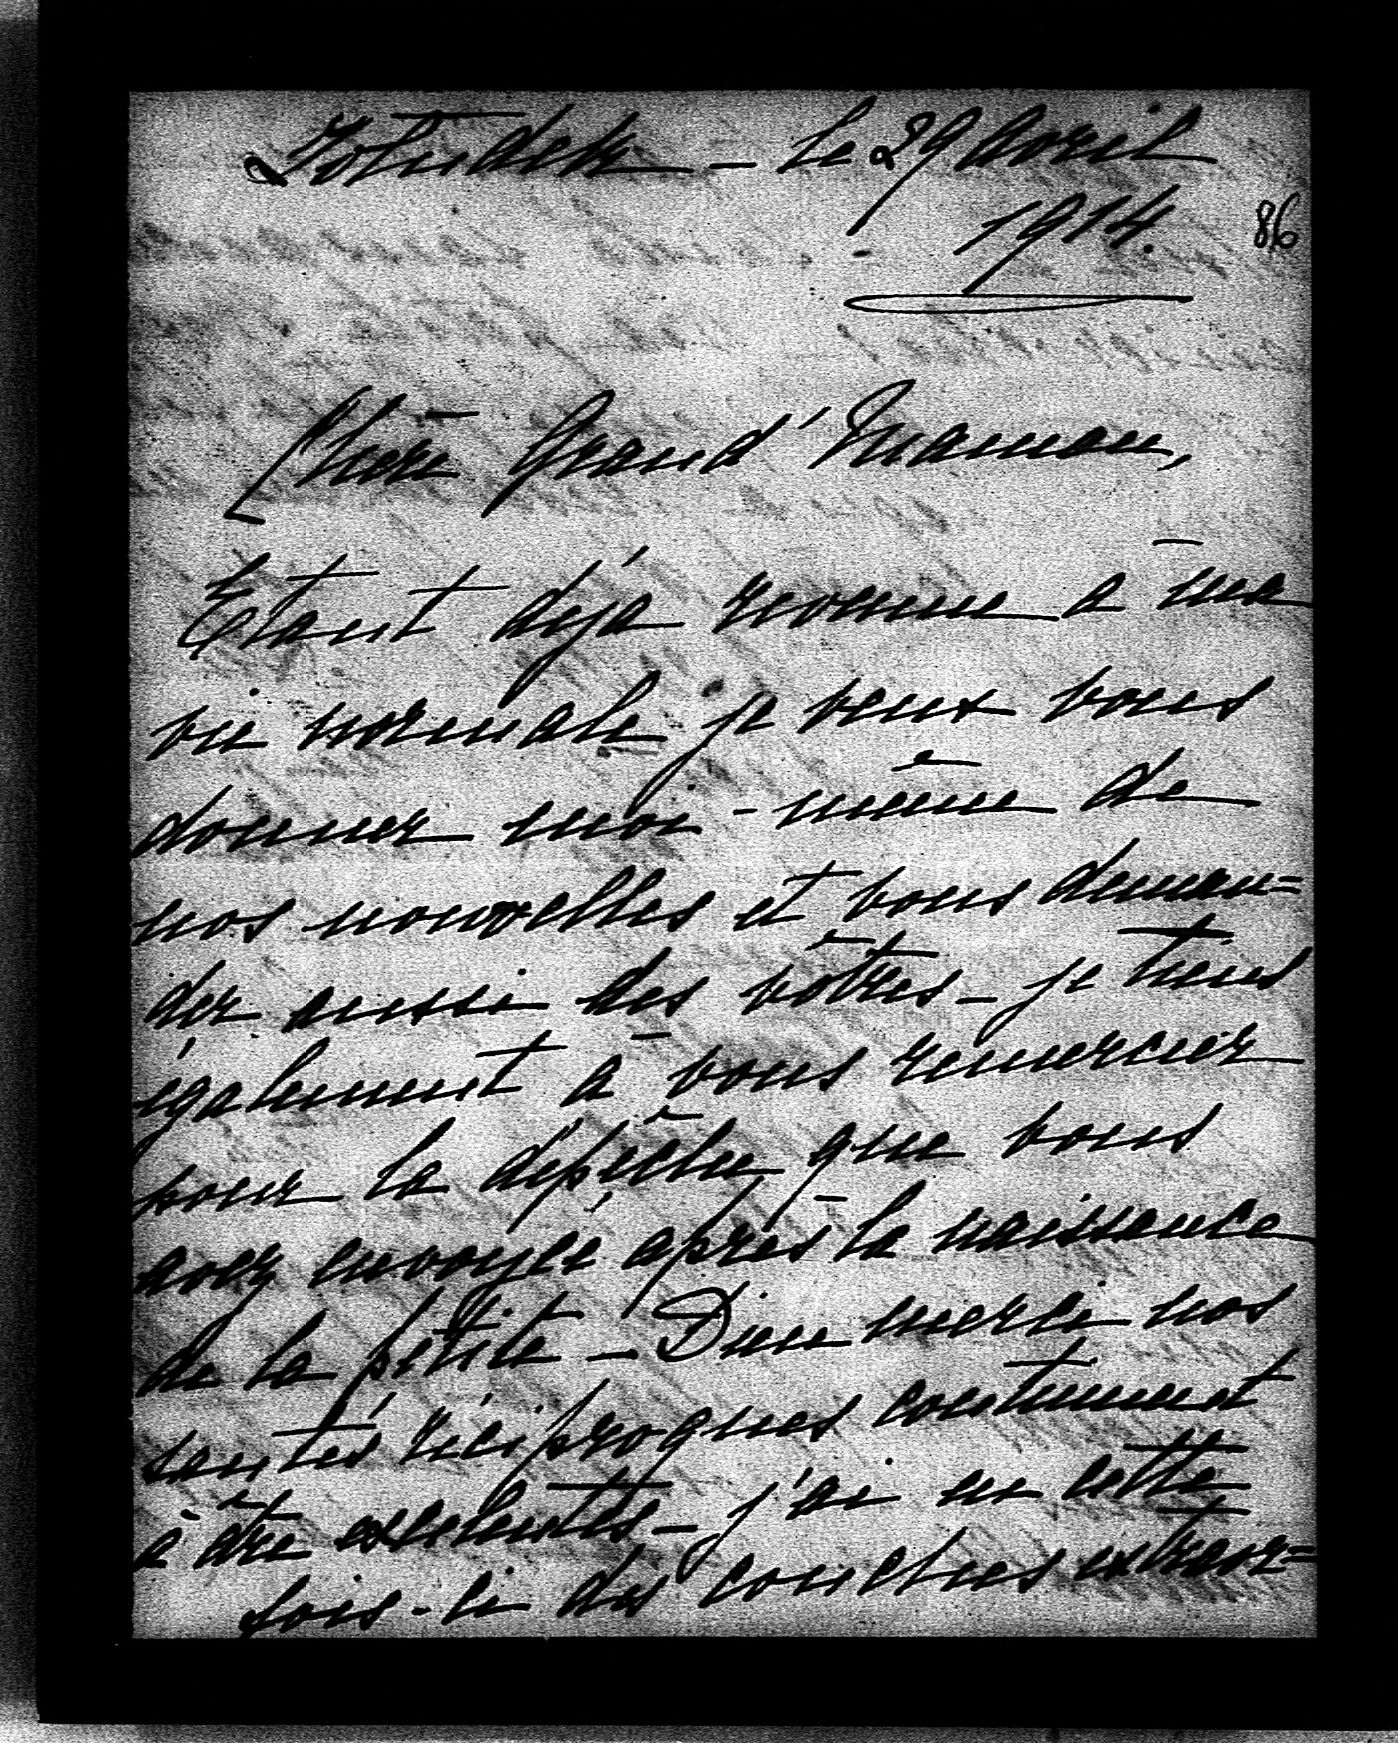 le 29 Avril
1914.
86
Chère Grand'Maman,
Etant déjà revenue à ma
vie normale je veux vous
donner moi-même de
nos nouvelles et vous deman=
der aussi des vôtres – je tiens
également à vous remercier
pour la dépêche que vous
avez envoyée après la naissance
de la petite – Dieu merci nos
santés réciproques continuent
à être exelentes – j'ai eu cette
fois-ci des couches extraor=